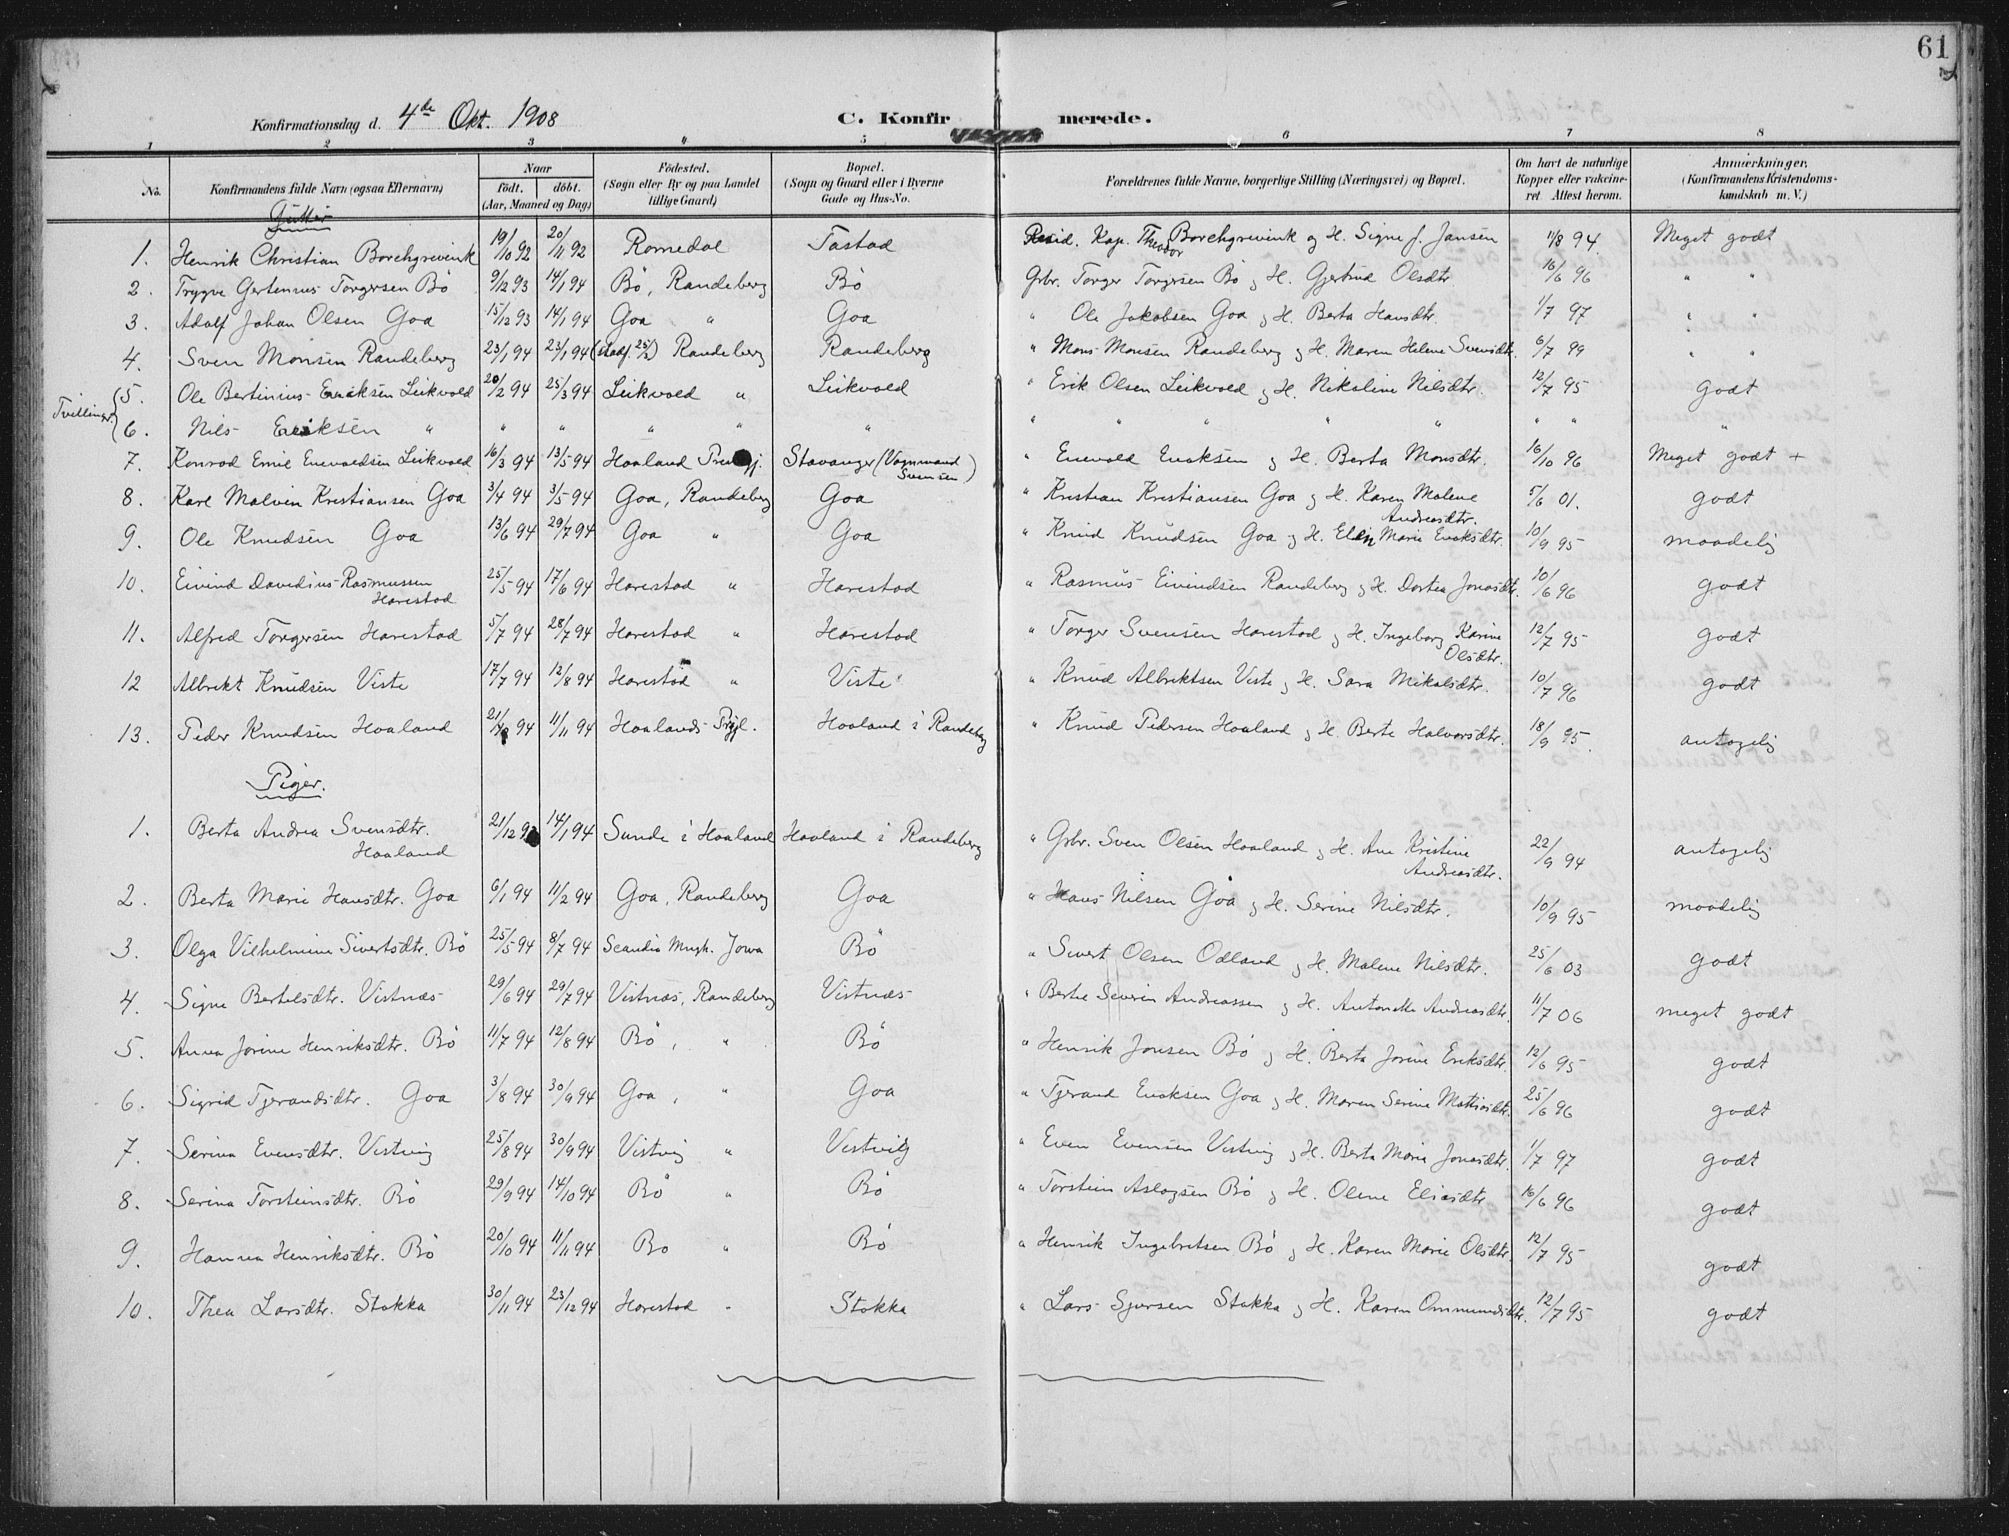 61
Konfirmationsdag d. 4de Okt. 1908 C. Konfirmerede.
1 2 3 4 5 6 7 8
No. Konfirmandens fulde Navn (ogsaa Efternavn) Naar født. døbt. (Aar, Maaned og Dag) Fødested. (Sogn eller By og paa Landet tillige Gaard) Bopæl. (Sogn og Gaard eller i Byerne Gade og Hus-No. Forældrenes fulde Navne, borgerlige Stilling (Næringsvei) og Bopæl. Om havt de naturlige Kopper eller vakcineret Attest herom. Anmærkninger. (Konfirmandens Kristendomskundskab m. V.)
Gutter
1. Henrik Christian Borchgrevink 19/10 92 20/11 92 Romedal Tastad Resid. Kap. Theodor Borchgrevink og H. Signe f. Jansen 11/8 94. Meget godt
2. Trygve Gertenius Torgersen Bö 9/12 93 14/1 94 Bö, Randeberg Bö Grbr. Torger Torgersen Bö og H. Gjertrud Olsdtr 16/6 96 " "
3. Adolf Johan Olsen Goa 15/12 93 14/1 94 Goa " Goa " Ole Jakobsen Goa og H. Berta Hansdtr. 1/7 97 " "
4. Sven Monsen Randeberg 23/1 94 23/1 94 (stadf. 25/2) Randeberg Randeberg " Mons Monsen Randeberg og H. Maren Helene Svensdtr. 6/7 99 " "
Tvillinger
5. Ole Bertinius Eriksen Leikvold 20/2 94 25/3 94 Leikvold " Leikvold " Erik Olsen Leikvold og H. Nikoline Nilsdtr. 12/7 95 Godt
6. Nils Eriksen " " " " " " " " " " " " " "
7. Konrad Emil Enevoldsen Leikvold 16/3 94 13/5 94 Haaland Stavanger (Vognmand Svensen) " Enevold Eriksen og H. Berta Monsdtr. 16/10 96 Meget godt +
8. Karl Malvin Kristiansen Goa 3/4 94 3/5 94 Goa, Randeberg Goa " Kristian Kristiansen Goa og H. Karen Malene Andreasdtr. 5/6 01. godt
9. Ole Knudsen Goa 13/6 94 29/7 94 Goa " Goa " Knud Knudsen Goa og H. Elen Marie Eriksdtr. 10/9 95 maadelig
10. Eivind Davidius Rasmussen Harestad 25/5 94 17/6 94 Harestad " Harestad " Rasmus Eivindsen Randeberg og H. Dortea Jonasdtr. 10/6 96 godt
11. Alfred Torgersen Harestad 5/7 94 28/7 94 Harestad " Harestad " Torger Svensen Harestad og H. Ingeborg Karine Olsdtr. 12/7 95 godt
12 Albrekt Knudsen Viste 17/7 94 12/8 94 Harestad " Viste " Knud Albrektsen Viste og H. Sara Mikalsdtr. 10/7 96 godt
13. Peder Knudsen Haaland 94 11/11 94 Haalands Prgjl. Haaland i Randeberg " Knud Pedersen Haaland og H. Berte Halvorsdtr. 18/9 95. antagelig
Piger.
1. Berta Andrea Svensdtr. Haaland 21/12 93 14/1 94 Sunde i Haaland Haaland i Randeberg " Grbr. Sven Olsen Haaland og H. Ane Kristine Andreasdtr. 22/9 94 antagelig
2. Berta Marie Hansdtr. Goa 6/1 94 11/2 94 Goa, Randeberg Goa " Hans Nilsen Goa og H. Serine Nilsdtr. 10/9 95 maadelig
3. Olga Vilhelmine Sivertsdtr. Bö 25/5 94 8/7 94 Scandia Mngh. Jowa Bö " Sivert Olsen Odland og H. Malene Nilsdtr. 25/6 03 godt
4. Signe Bertelsdtr. Vistnæs 29/6 94 29/7 94 Vistnæs, Randeberg Vistnæs " Bertel Severin Andreassen og H. Antonette Andreasdtr. 11/7 06 meget godt
5. Anna Jorine Henriksdtr. Bö 11/7 94 12/8 94 Bö, " Bö " Henrik Jonsen Bö og H. Berta Jorine Eriksdtr. 12/6 95 godt
6. Sigrid Tjerandsdtr. Goa 3/8 94 30/9 94 Goa, " Goa " Tjerand Eriksen Goa og H. Maren Serine Mattiasdtr. 25/6 96 godt
7. Serina Evensdtr. Vistvig 25/8 94 30/9 94 Vistvig " Vistvig " Even Evensen Vistvig og H. Berta Marie Jonasdtr. 1/7 97 godt
8. Serina Torsteinsdtr. Bö 29/9 94 14/10 94 Bö " Bö " Torstein Aslagsen Bö og H. Olene Eliasdtr. 16/6 96 godt
9. Hanna Henriksdtr. Bö 20/10 94 11/11 94 Bö " Bö " Henrik Ingebretsen Bö og H. Karen Marie Olsdtr. 12/7 95 godt
10. Thea Larsdtr. Stokka 30/11 94 23/12 94 Harestad " Stokka " Lars Sjursen Stokka og H. Karen Ommundsdtr. 12/7 95 godt